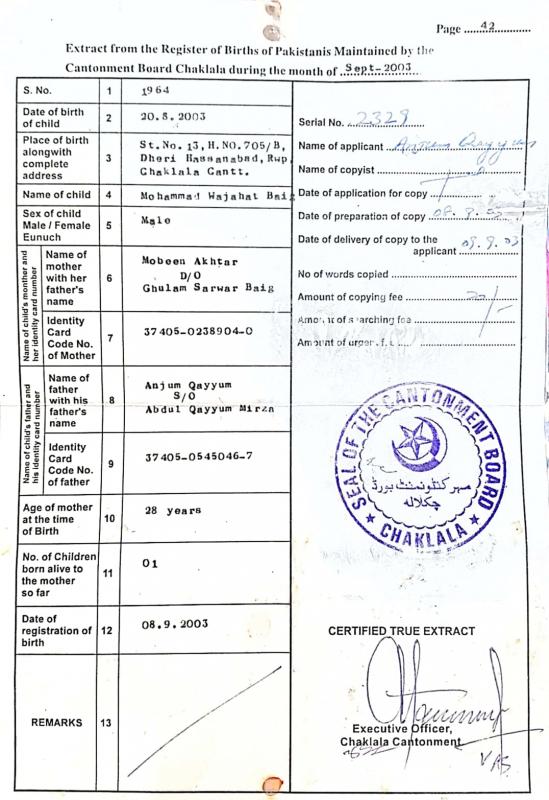 Page ....42............
Extract from the Register of Births of Pakistanis Maintained by the
Cantonment Board Chaklala during the month of Sept-2003
S. No. 1 1964
Date of birth of child 2 20.8.2003
Place of birth alongwith complete address 3 St.No. 13, H.NO.705/B, Dheri Hassanabad, Rwp Chaklala Cantt.
Name of child 4 Mohammad Wajahat Baig
Sex of child Male / Female Eunuch 5 Male
Name of child's monther and her identity card number
Name of mother with her father's name 6 Mobeen Akhtar D/O Ghulam Sarwar Baig
Identity Card Code No. of Mother 7 37405-0238904-0
Name of child's father and his identity card number
Name of father with his father's name 8 Anjum Qayyum S/O Abdul Qayyum Mirza
Identity Card Code No. of father 9 37405-0545046-7
Age of mother at the time of Birth 10 28 years
No. of Children born alive to the mother so far 11 01
Date of registration of birth 12 08.9.2003
REMARKS 13
Serial No. 2329
Name of applicant Anjum Qayyum
Name of copyist
Date of application for copy
Date of preparation of copy 08.9.03
Date of delivery of copy to the applicant 08.9.03
No of words copied
Amount of copying fee 20/-
Amount of searching fee
Amount of urgent fee
SEAL OF THE CANTONMENT BOARD
مہر کنٹونمنٹ بورڈ
چکلالہ
CHAKLALA
CERTIFIED TRUE EXTRACT
Executive Officer,
Chaklala Cantonment